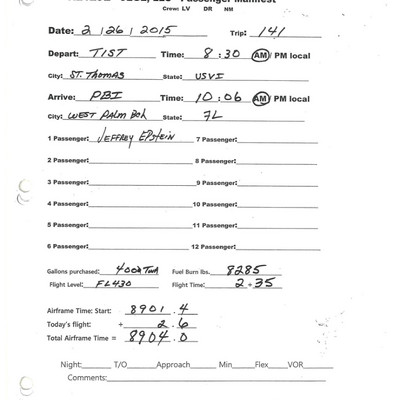 Passenger Manifest
Crew: LV DR NM
Date: 2 | 26 | 2015 Trip: 141
Depart: TIST Time: 8 : 30 AM / PM local
City: ST. THOMAS State: USVI
Arrive: PBI Time: 10 : 06 AM / PM local
City: WEST PALM BCH State: FL
1 Passenger: JEFFREY EPSTEIN 7 Passenger:
2 Passenger: 8 Passenger:
3 Passenger: 9 Passenger:
4 Passenger: 10 Passenger:
5 Passenger: 11 Passenger:
6 Passenger: 12 Passenger:
Gallons purchased: Fuel Burn lbs. 8285
Flight Level: FL430 Flight Time: 2 + 35
Airframe Time: Start: 8901 . 4
Today's flight: + 2 . 6
Total Airframe Time = 8904 . 0
Night: T/O Approach Min Flex VOR
Comments: